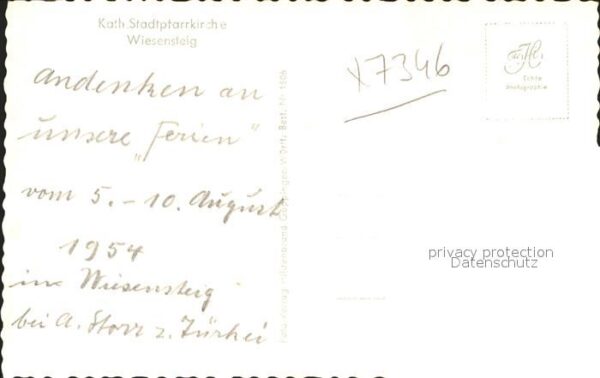 Kath. Stadtpfarrkirche
Wiesensteig
Andenken an
unsere „Ferien"
vom 5. - 10. August
1954
in Wiesensteig
bei A. Storr z.
x7346
Echte
Photographie
Best. Nr.
privacy protection
Datenschutz